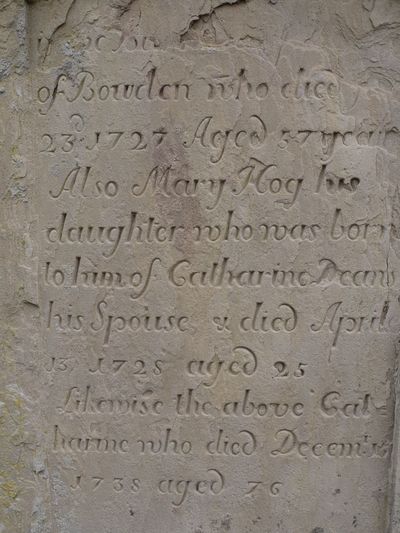 of Bowden who died
23d 1727 Aged 57 year
Also Mary Hog his
daughter who was born
to him of Catharine Deans
his Spouse & died April
13 1728 aged 25
Likewise the above Cat-
harine who died Decemr
1738 aged 76